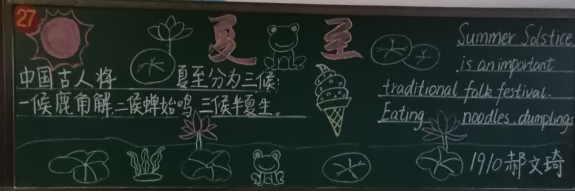 27
夏至
中国古人将夏至分为三候:
一候鹿角解,二候蝉始鸣,三候半夏生。
Summer Solstice
is an important
traditional folk festival.
Eating noodles, dumplings
1910郝文琦